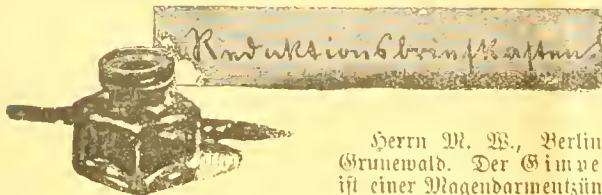 Redaktionsbriefkasten
Herrn M. W., Berlin
Grunewald. Der Gimpe
ist einer Magendarmentzün